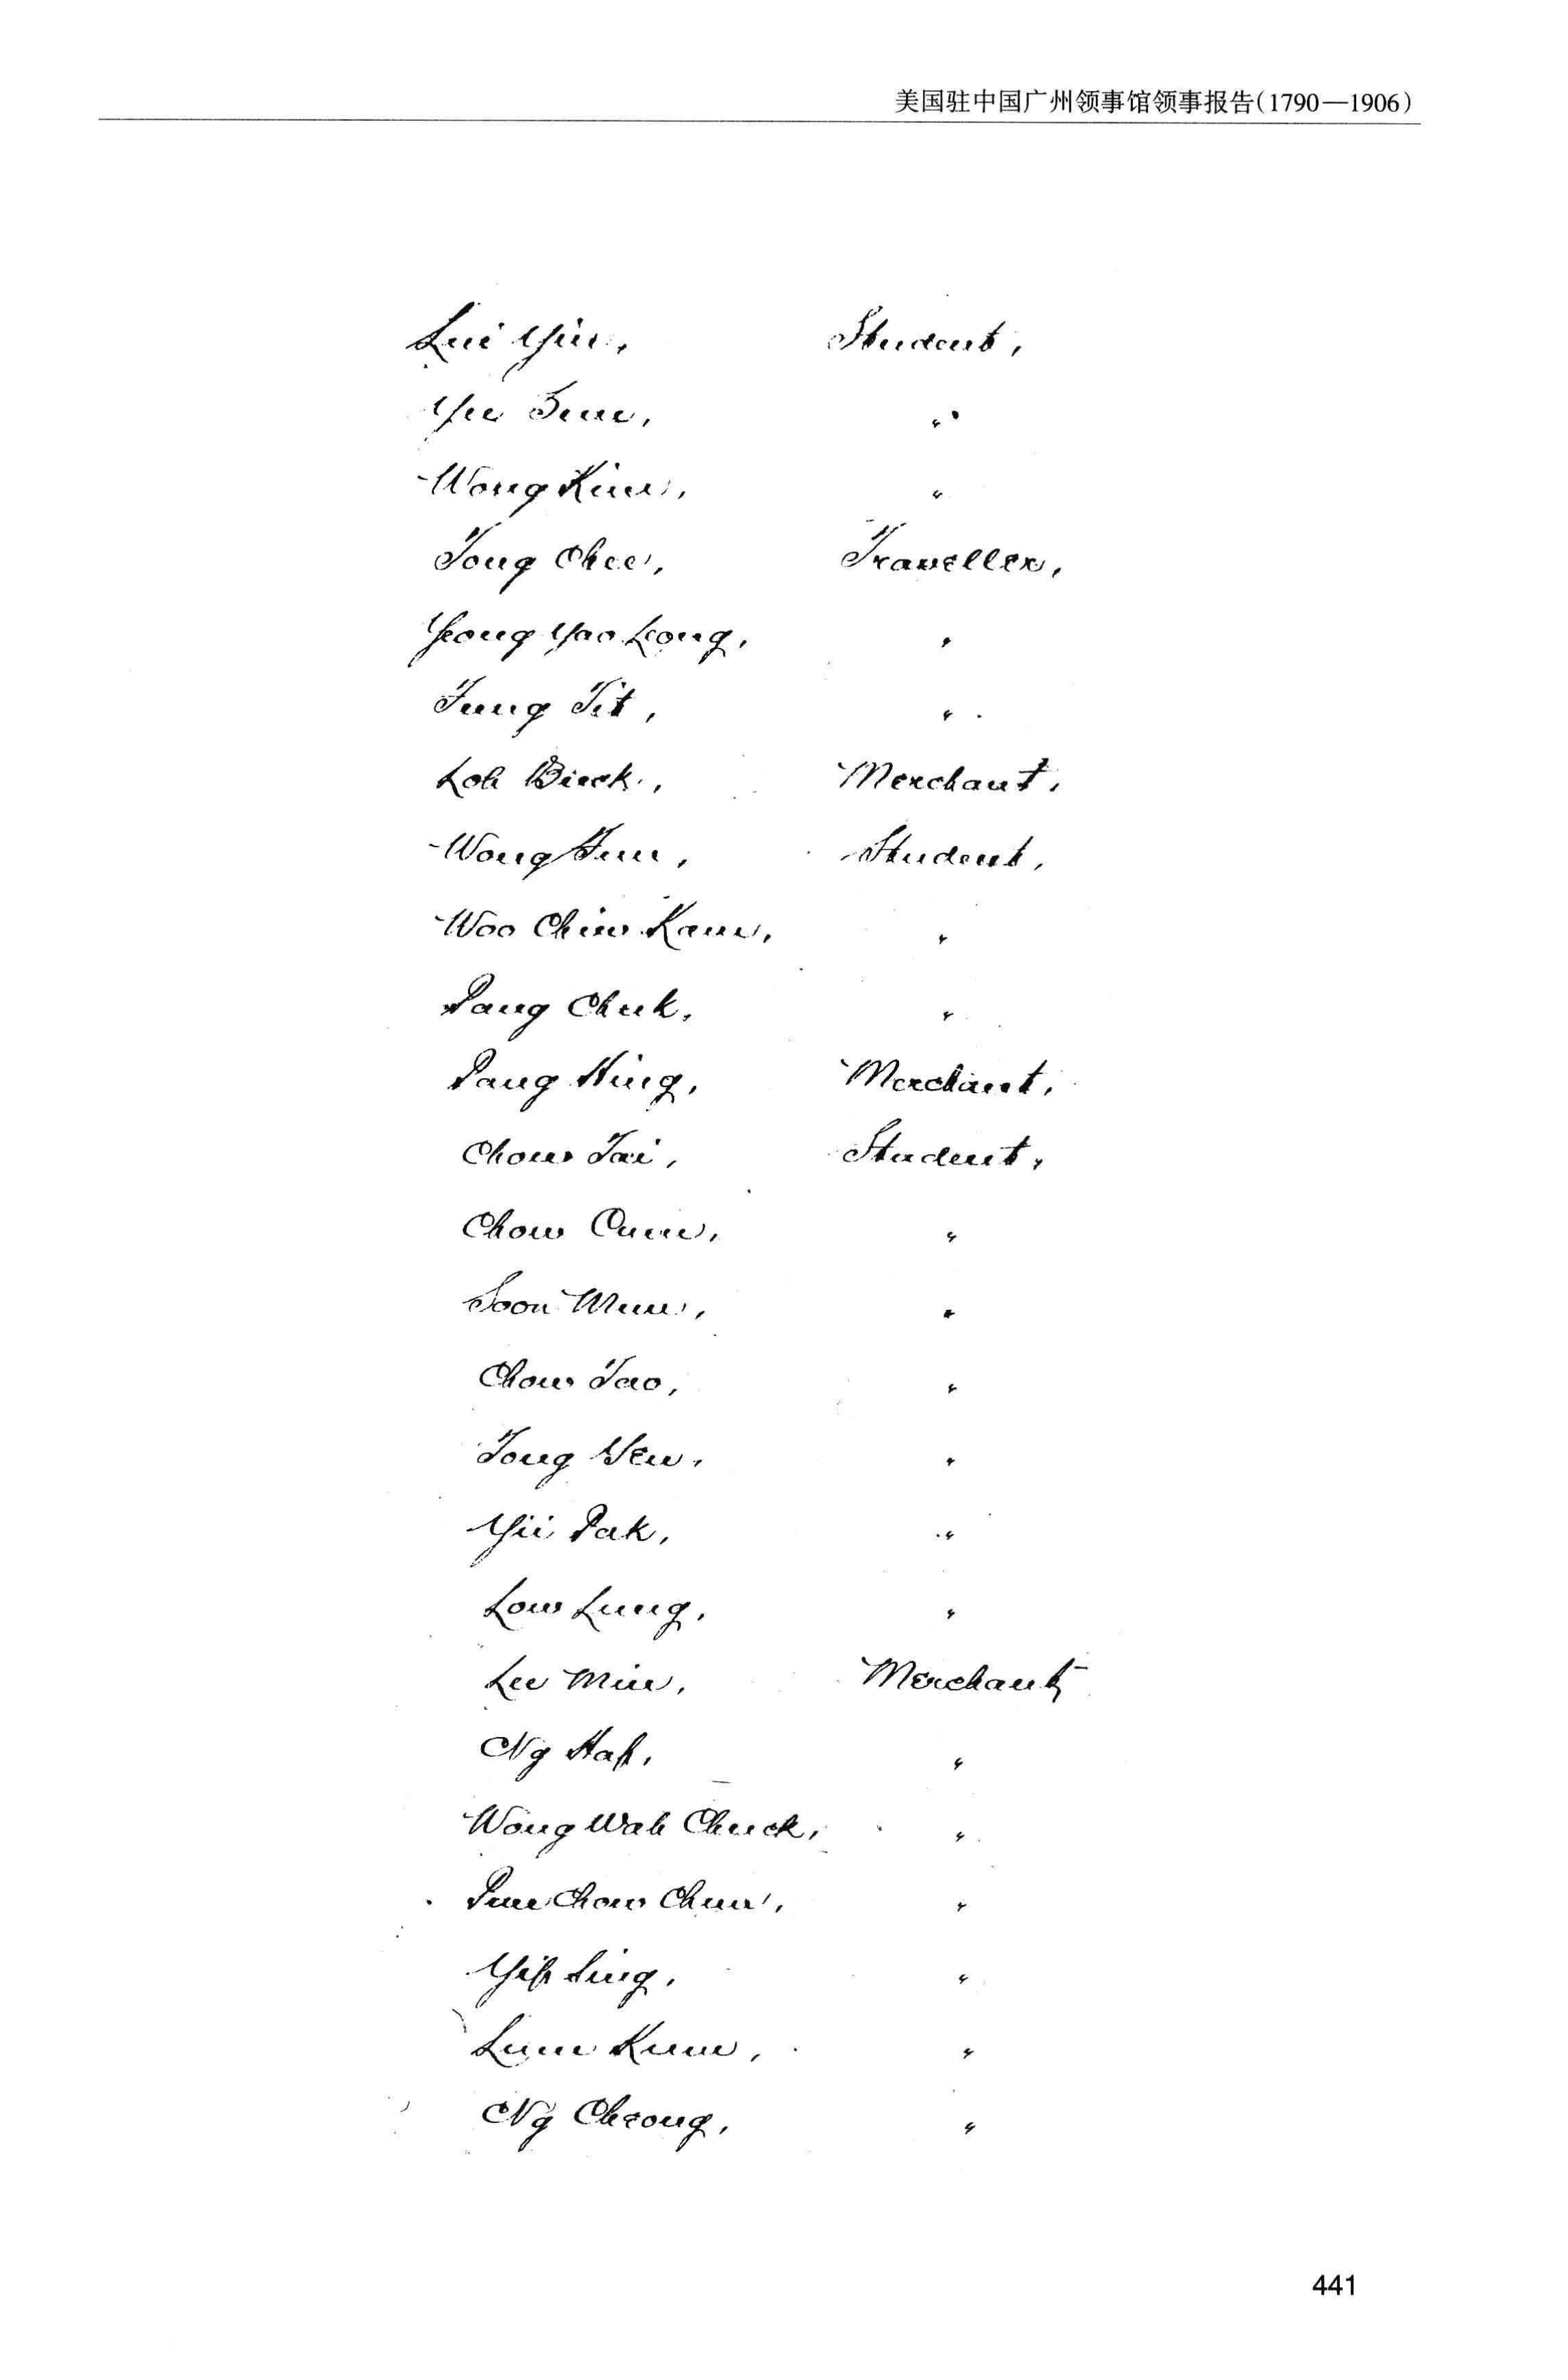 美国驻中国广州领事馆领事报告(1790—1906)
Lui Yin, Student,
Yee Sun, "
Wong Kim, "
Tong Chee, Traveller,
Yeong Yao Leong, "
Fung Tit, "
Loh Bieck, Merchant,
Wong Fun, Student,
Woo Chin Kam, "
Pang Chuk, "
Pang Hing, Merchant,
Chow Tai, Student,
Chow Cum, "
Soon Mun, "
Chow Tao, "
Tong Yen, "
Yii Pak, "
Low Lung, "
Lee Min, Merchant,
Ng Hap, "
Wong Wah Chuck, "
Pun Chow Chun, "
Yip Sing, "
Lum Kum, "
Ng Cheong, "
441